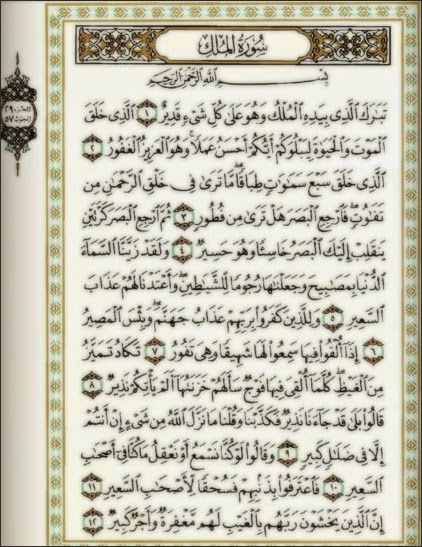 سُورَةُ المُلْكِ
بِسْمِ ٱللَّهِ ٱلرَّحْمَٰنِ ٱلرَّحِيمِ
الجزء ٢٩
الحزب ٥٧
تَبَٰرَكَ ٱلَّذِى بِيَدِهِ ٱلْمُلْكُ وَهُوَ عَلَىٰ كُلِّ شَىْءٍ قَدِيرٌ ١ ٱلَّذِى خَلَقَ
ٱلْمَوْتَ وَٱلْحَيَوٰةَ لِيَبْلُوَكُمْ أَيُّكُمْ أَحْسَنُ عَمَلًا ۚ وَهُوَ ٱلْعَزِيزُ ٱلْغَفُورُ ٢
ٱلَّذِى خَلَقَ سَبْعَ سَمَٰوَٰتٍ طِبَاقًا ۖ مَّا تَرَىٰ فِى خَلْقِ ٱلرَّحْمَٰنِ مِن
تَفَٰوُتٍ ۖ فَٱرْجِعِ ٱلْبَصَرَ هَلْ تَرَىٰ مِن فُطُورٍ ٣ ثُمَّ ٱرْجِعِ ٱلْبَصَرَ كَرَّتَيْنِ
يَنقَلِبْ إِلَيْكَ ٱلْبَصَرُ خَاسِئًا وَهُوَ حَسِيرٌ ٤ وَلَقَدْ زَيَّنَّا ٱلسَّمَآءَ
ٱلدُّنْيَا بِمَصَٰبِيحَ وَجَعَلْنَٰهَا رُجُومًا لِّلشَّيَٰطِينِ ۖ وَأَعْتَدْنَا لَهُمْ عَذَابَ
ٱلسَّعِيرِ ٥ وَلِلَّذِينَ كَفَرُوا۟ بِرَبِّهِمْ عَذَابُ جَهَنَّمَ ۖ وَبِئْسَ ٱلْمَصِيرُ
٦ إِذَآ أُلْقُوا۟ فِيهَا سَمِعُوا۟ لَهَا شَهِيقًا وَهِىَ تَفُورُ ٧ تَكَادُ تَمَيَّزُ
مِنَ ٱلْغَيْظِ ۖ كُلَّمَآ أُلْقِىَ فِيهَا فَوْجٌ سَأَلَهُمْ خَزَنَتُهَآ أَلَمْ يَأْتِكُمْ نَذِيرٌ ٨
قَالُوا۟ بَلَىٰ قَدْ جَآءَنَا نَذِيرٌ فَكَذَّبْنَا وَقُلْنَا مَا نَزَّلَ ٱللَّهُ مِن شَىْءٍ إِنْ أَنتُمْ
إِلَّا فِى ضَلَٰلٍ كَبِيرٍ ٩ وَقَالُوا۟ لَوْ كُنَّا نَسْمَعُ أَوْ نَعْقِلُ مَا كُنَّا فِىٓ أَصْحَٰبِ
ٱلسَّعِيرِ ١٠ فَٱعْتَرَفُوا۟ بِذَنۢبِهِمْ فَسُحْقًا لِّأَصْحَٰبِ ٱلسَّعِيرِ ١١
إِنَّ ٱلَّذِينَ يَخْشَوْنَ رَبَّهُم بِٱلْغَيْبِ لَهُم مَّغْفِرَةٌ وَأَجْرٌ كَبِيرٌ ١٢